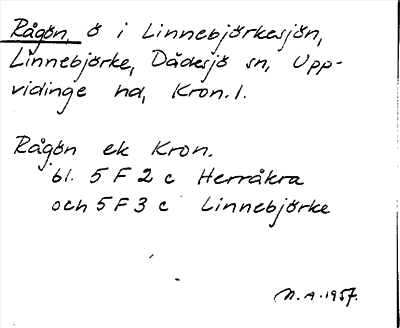 Rågön, ö i Linnebjörkesjön,
Linnebjörke, Dädesjö sn, Upp-
vidinge hd, Kron. l.
Rågön ek Kron.
bl. 5 F 2 c Herråkra
och 5 F 3 c Linnebjörke
N.A. 1957.